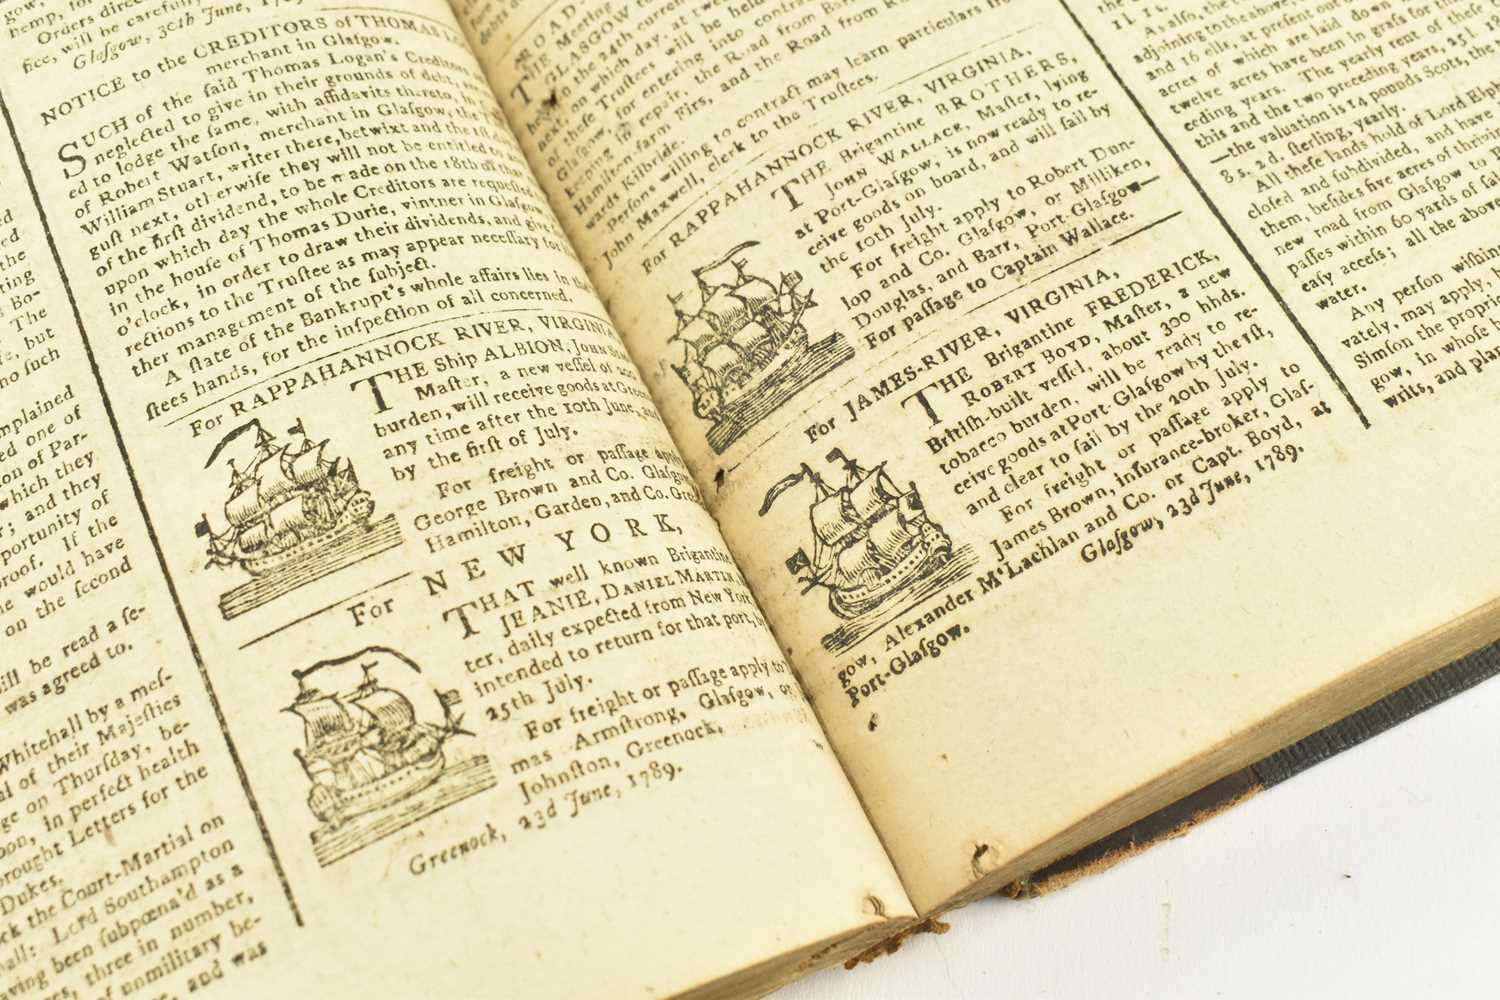 Orders direc
will be carefully
Glaſgow, 30th June, 178
NOTICE to the CREDITORS of THOMAS L
merchant in Glaſgow.
SUCH of the ſaid Thomas Logan's Creditors
neglected to give in their grounds of debt, a
ed to lodge the ſame, with affidavits thereto, in
of Robert Watſon, merchant in Glaſgow, the
William Stuart, writer there, betwixt and the 1ſt da
guſt next, otherwiſe they will not be entitled to a
of the firſt dividend, to be made on the 18th of that
upon which day the whole Creditors are requeſted
in the houſe of Thomas Durie, vintner in Glaſgow
o'clock, in order to draw their dividends, and give
rections to the Truſtee as may appear neceſſary for
ther management of the ſubject.
A ſtate of the Bankrupt's whole affairs lies in th
ſtees hands, for the inſpection of all concerned.
For RAPPAHANNOCK RIVER, VIRGINIA
THE Ship ALBION, JOHN
Maſter, a new veſſel of
burden, will receive goods at Gree
any time after the 10th June, and
by the firſt of July.
For freight or paſſage appl
George Brown and Co. Glaſg
Hamilton, Garden, and Co. Gre
For NEW YORK,
THAT well known Brigantine
JEANIE, DANIEL MARTIN,
ter, daily expected from New York
intended to return for that port, b
25th July.
For freight or paſſage apply to
mas Armſtrong, Glaſgow, or
Johnſton, Greenock.
Greenock, 23d June, 1789.
ROAD
THE Meeting
GLASGOW
the 24th current
next, on which day, at twe
of theſe Truſtees will be held
Glaſgow, for entering into contract
keeping in repair, the Road from Bar
Hamilton-farm Firs, and the Road from R
wards Kilbride.
Perſons willing to contract may learn particulars fro
John Maxwell, clerk to the Truſtees.
For RAPPAHANNOCK RIVER, VIRGINIA,
THE Brigantine BROTHERS,
JOHN WALLACE, Maſter, lying
at Port-Glaſgow, is now ready to re-
ceive goods on board, and will ſail by
the 10th July.
For freight apply to Robert Dun-
lop and Co. Glaſgow, or Milliken,
Douglas, and Barr, Port-Glaſgow—
For paſſage to Captain Wallace.
For JAMES-RIVER, VIRGINIA,
THE Brigantine FREDERICK,
ROBERT BOYD, Maſter, a new
Britiſh-built veſſel, about 300 hhds.
tobacco burden, will be ready to re-
ceive goods at Port-Glaſgow by the 1ſt,
and clear to ſail by the 20th July.
For freight or paſſage apply to
James Brown, inſurance-broker, Glaſ-
gow, Alexander M'Lachlan and Co. or Capt. Boyd, at
Port-Glaſgow.
Glaſgow, 23d June, 1789.
Alſo, the
adjoining to the above,
and 16 ells, at preſent out
acres of which are laid down
twelve acres have been in graſs for th
ceding years. The yearly rent of theſe
this and the two preceding years, 25 l.
—the valuation is 14 pounds Scots, the
8 s. 2 d. ſterling, yearly.
All theſe lands hold of Lord Elph
cloſed and ſubdivided, and have
them, beſides five acres of thriving
new road from Glaſgow to
paſſes within 60 yards of
eaſy acceſs; all the above
water.
Any perſon wiſhin
vately, may apply,
Simſon the proprie
gow, in whoſe
writs, and plan
mplained
ed one of
on of Par-
which they
; and they
portunity of
roof. If the
e would have
on the ſecond
ill be read a ſe-
was agreed to.
Whitehall by a meſ-
al of their Majeſties
ge on Thurſday, be-
oon, in perfect health
rought Letters for the
Dukes.
ck the Court-Martial on
all: Lord Southampton
aving been ſubpœna'd as a
es, three in number,
of unmilitary be-
and was